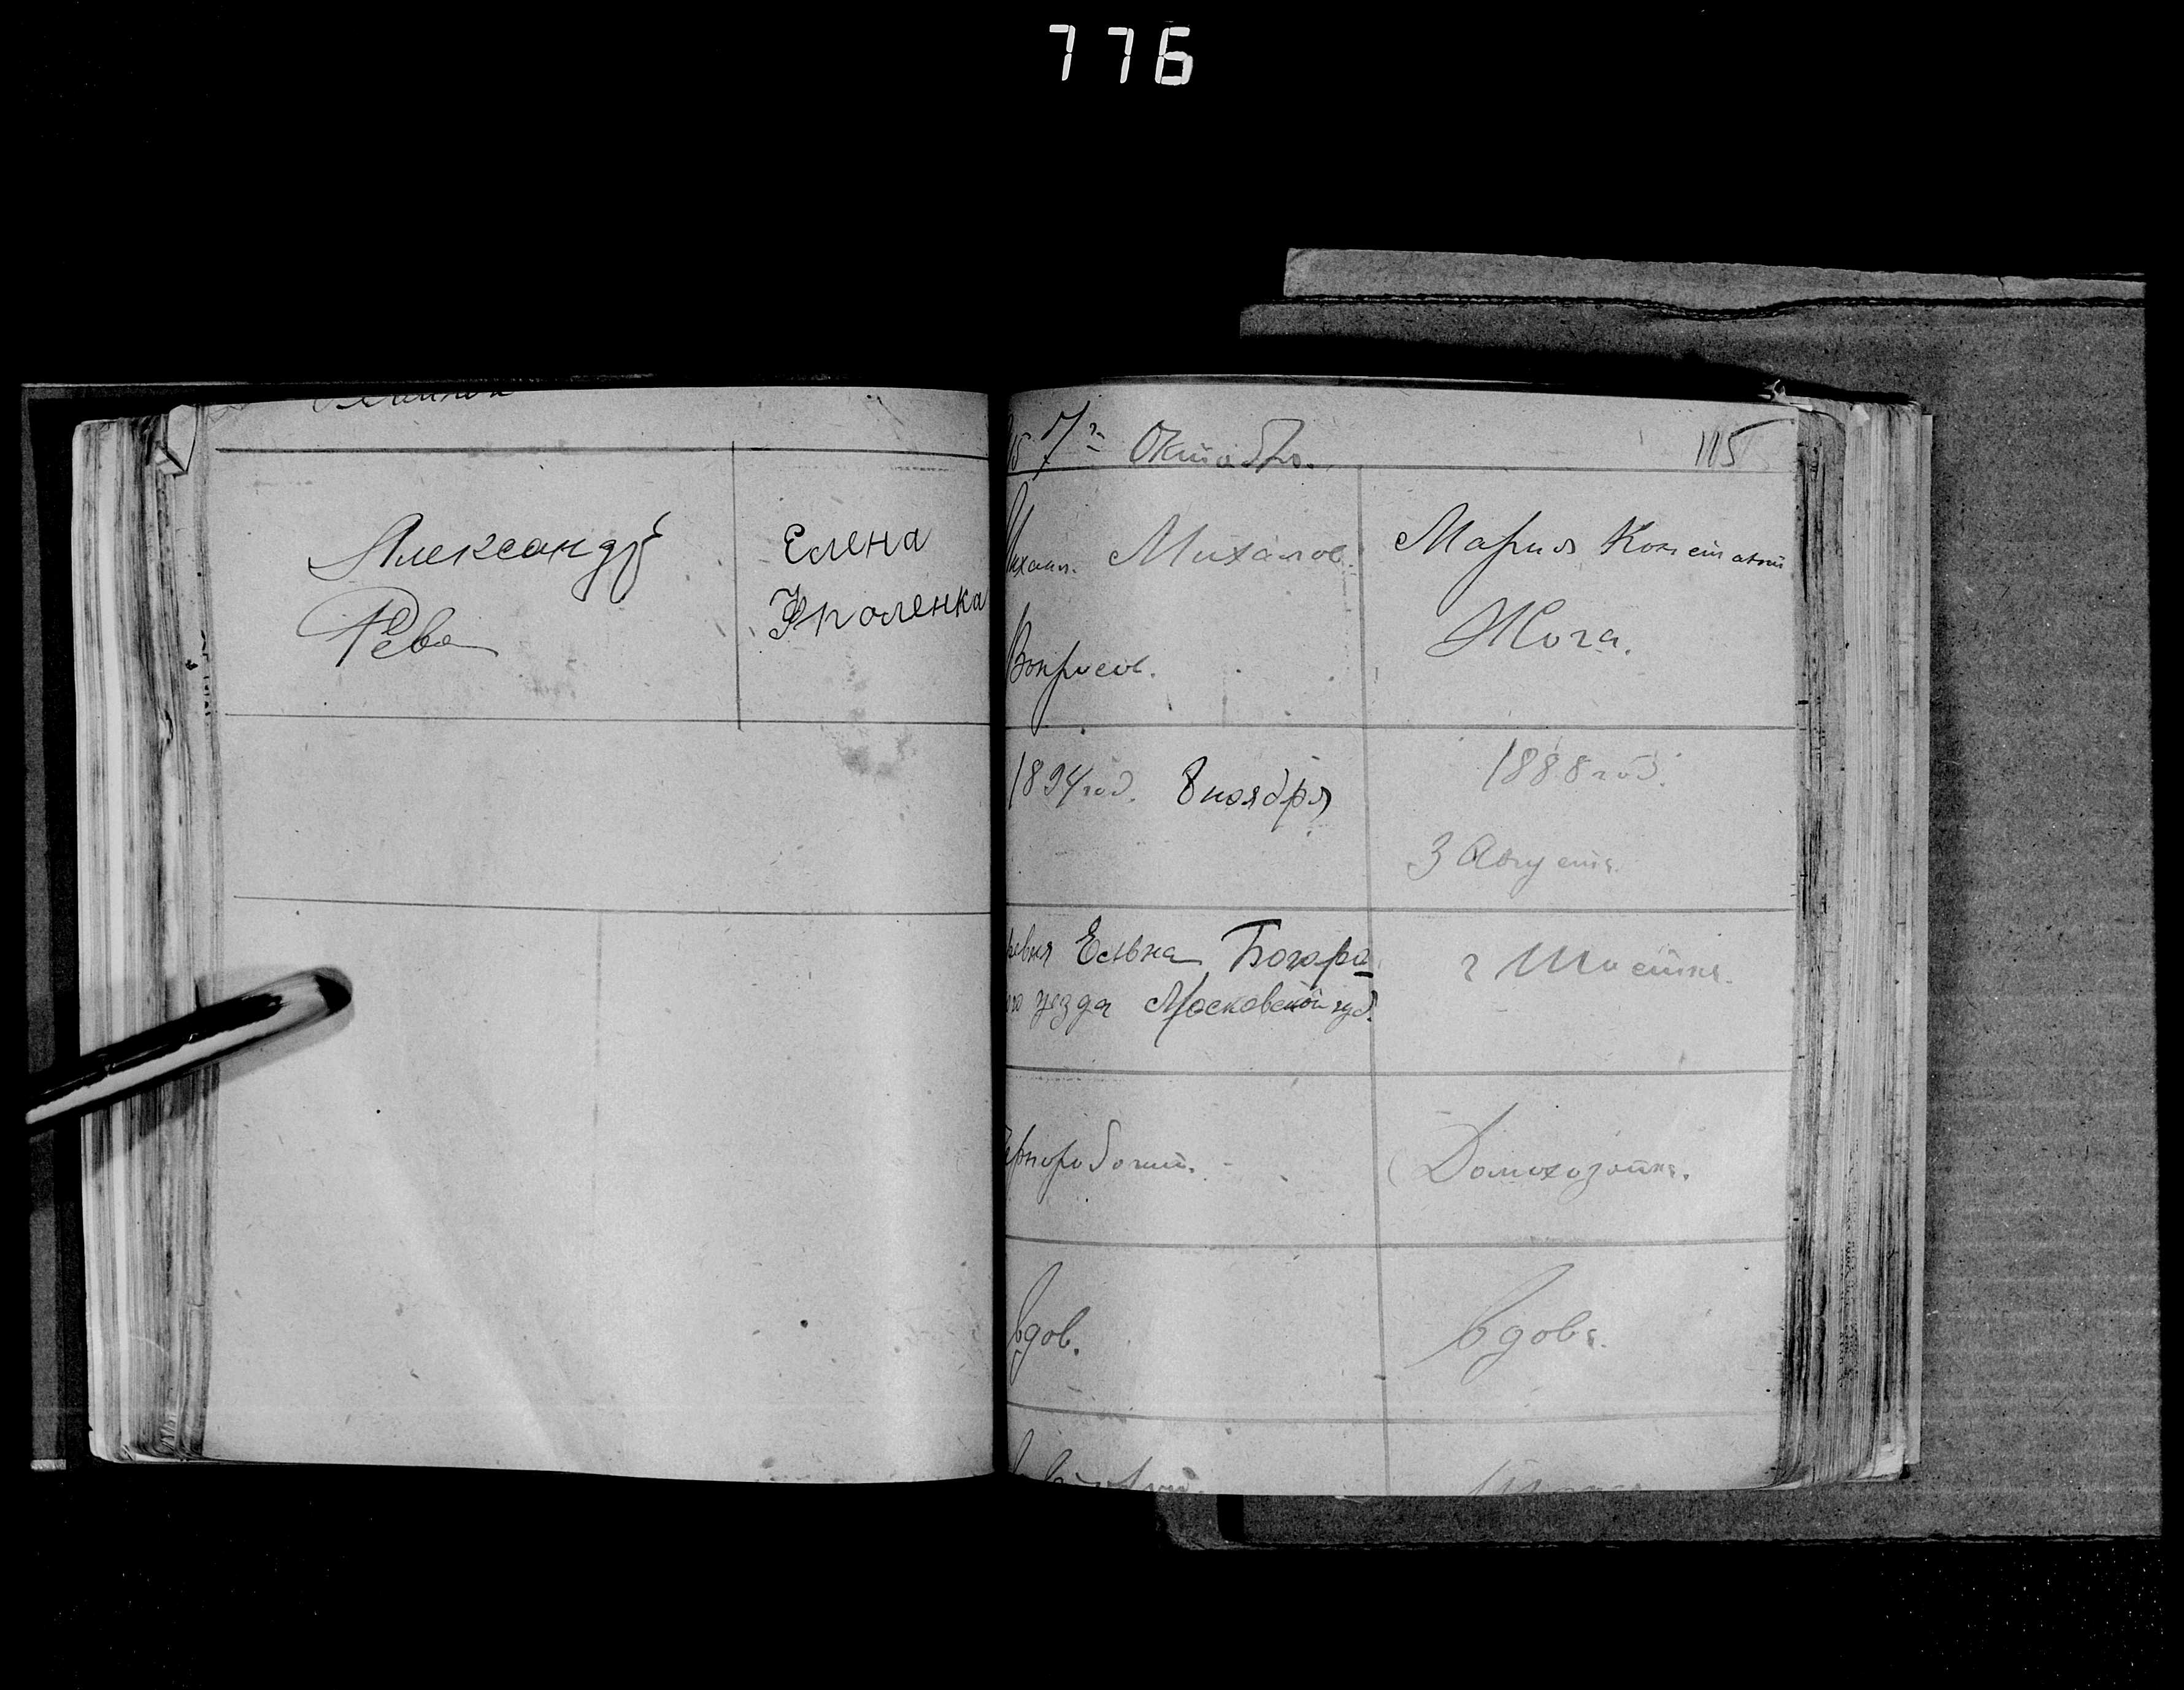 776
Александр
Рева
Елена
7го Октября.
115
Михаил. Михайлов.
Вопросов.
Мария Константин
Жога.
1894 год. 8 ноября
1888 год.
3 Августа.
Богоро
уезда Московской губ.
г Шостка.
Чернорабочий.
Домохозяйка.
вдов.
вдова.